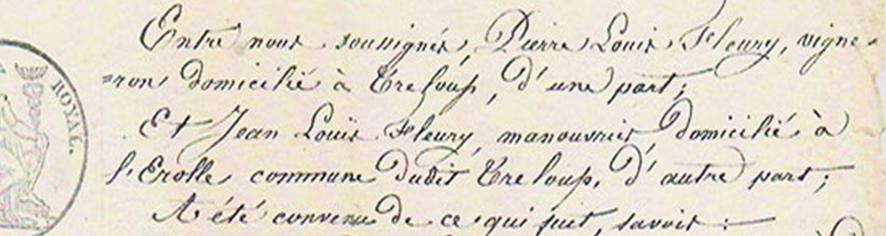 Entre nous soussignés, Pierre Louis Fleury, vigne=
=ron domicilié à Treloup, d'une part;
Et Jean Louis Fleury, manouvrier domicilié à
l'Erolle commune dudit Treloup, d'autre part;
A été convenu de ce qui suit, savoir :
ROYAL.